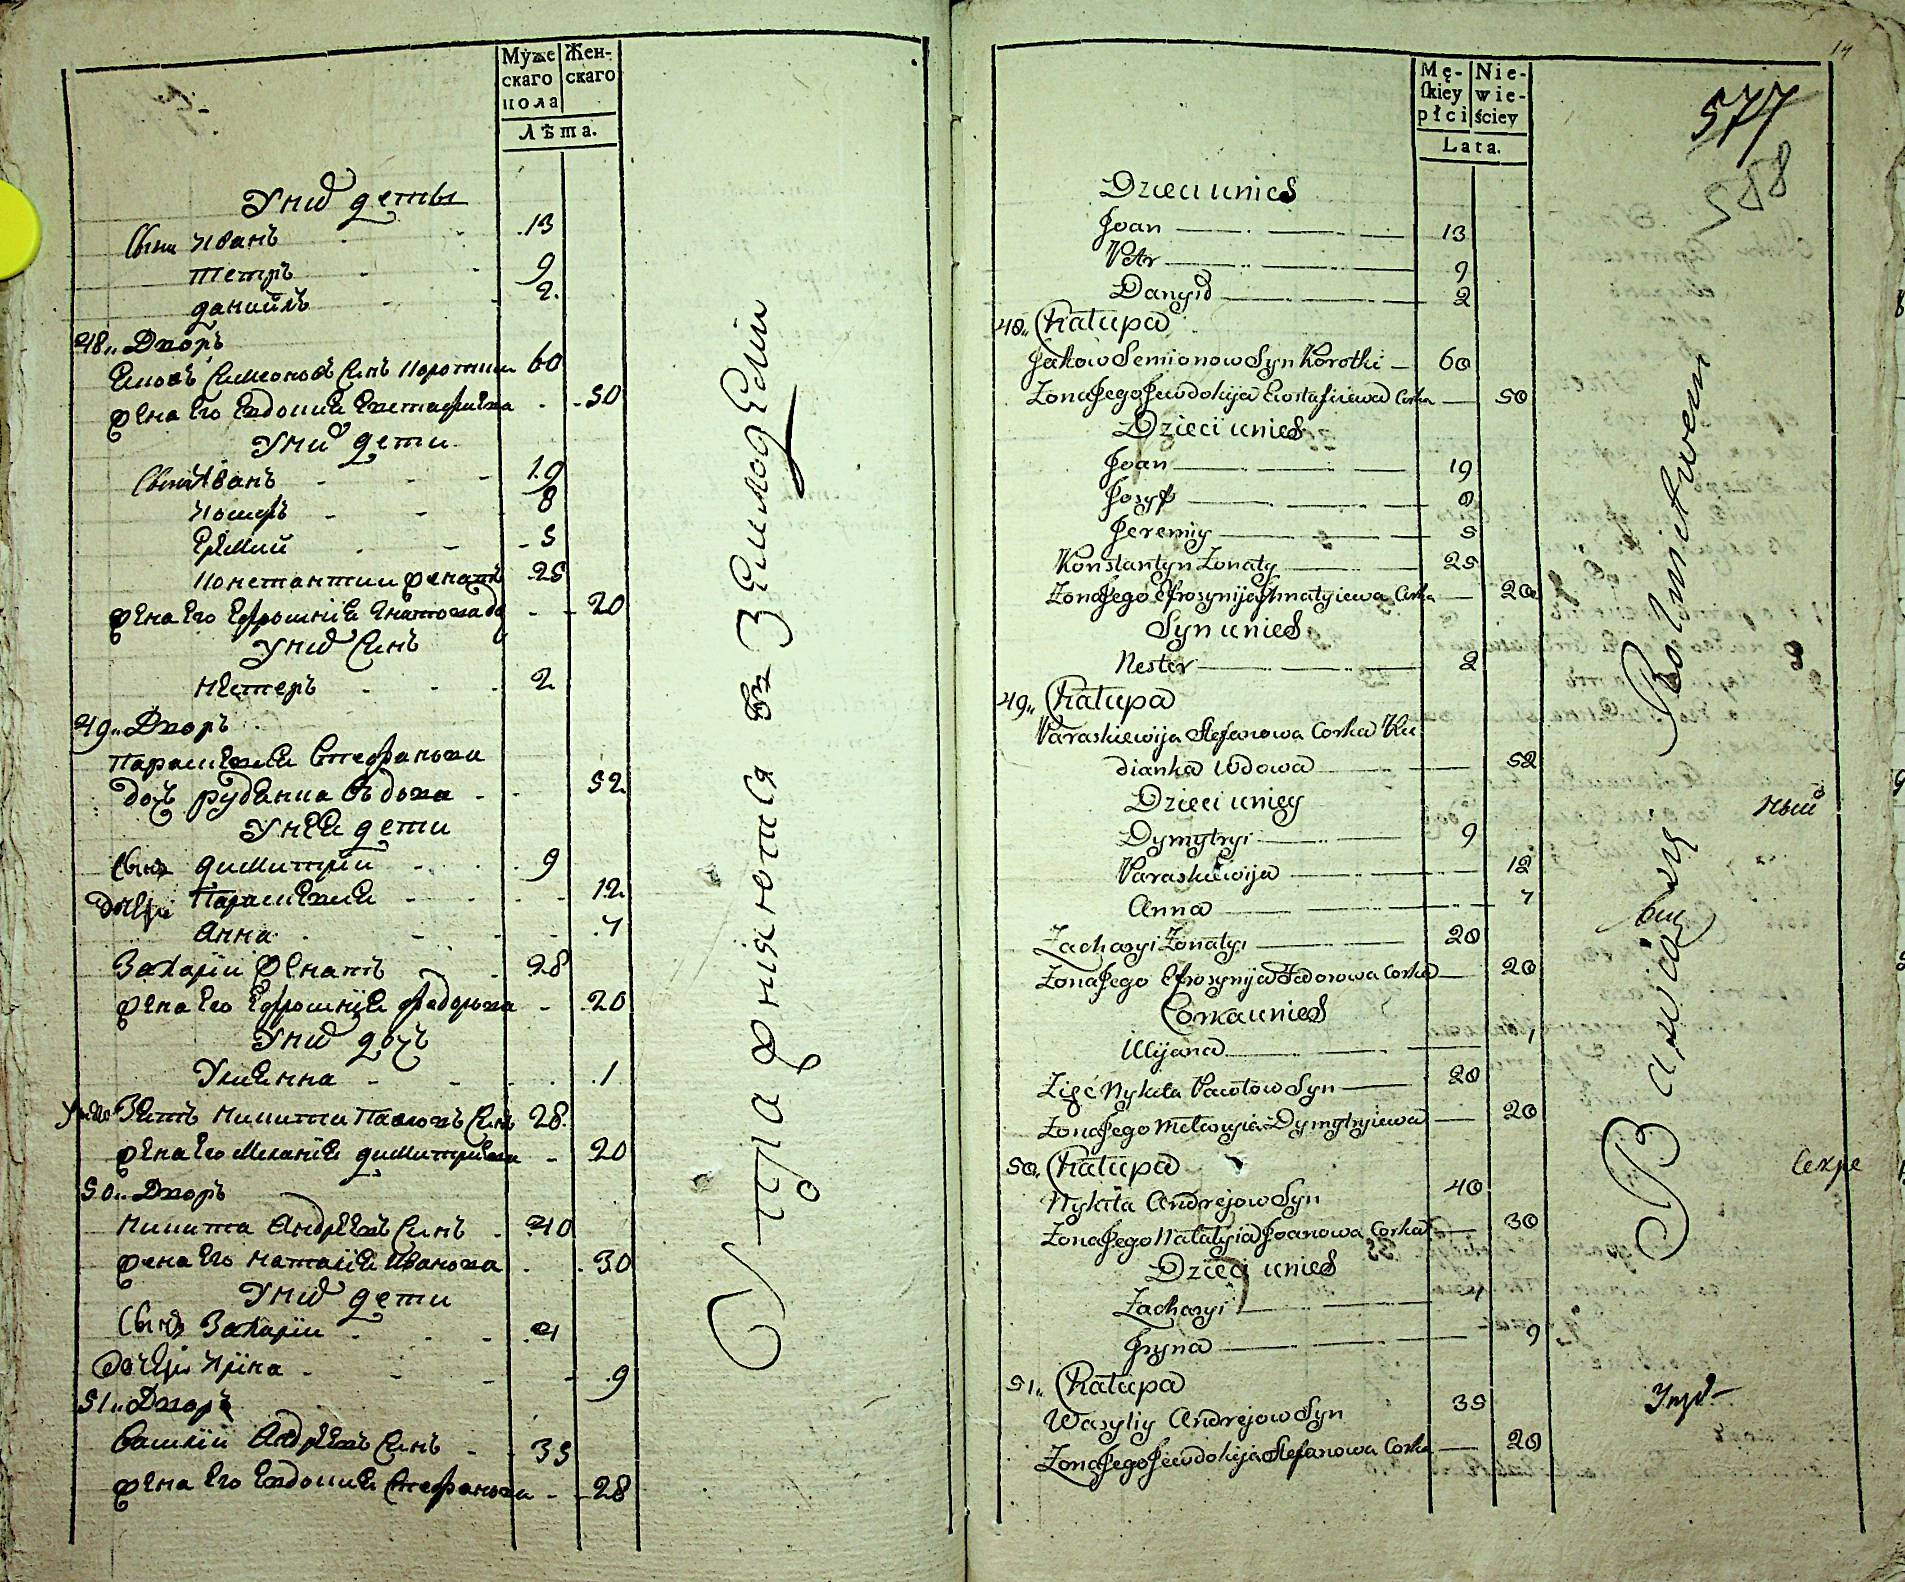 Муже Жен-
скаго скаго
пола
Лѣта.
Унид детьи
Сыни Иванъ 13
Петръ 9
Данийлъ 2.
48,, Дворъ
Симеоновъ Синъ 60
жена Его Евдокия Евстафиева 50
Унид дети
Сыни Иванъ 19
Иосифъ 8
Еремий 5
Константин женатъ 25
жена Его Ефросиния 20
Унид Синъ
Нестеръ 2
49,, Дворъ
Параскевия Стефанова
дочъ вдова 52
У нее дети
Сынъ Димитрии 9
дочери Параскевия 12
Анна 7
Захарии женатъ 28
жена Его Ефросиния Федорова 20
Унид дочъ
Улиянна 1
Зять Никита Павловъ Синъ 28.
жена Его Мелания Димитриева 20
50,, Дворъ
Никита Андреевъ Синъ 40
жена Его Наталия Иванова 30
Унид дети
Сынъ Захарии 4
дочери Ирина 9
51,, Дворъ
Василии Андреевъ Синъ 35
жена Его Евдокия Стефанова 28
14
577
588
Mę- Nie-
ſkiey wie-
płci ściey
Lata.
Dzieci unich
Joan 13
Petr 9
Danyił 2
48,, Chałupa
Jakow Semionow Syn Korotki 60
Zona Jego Jewdokija Ewstafiewa Corka 50
Dzieci unich
Joan 19
Josyf 8
Jeremiy 5
Konstantyn Zonaty 25
Zona Jego Efrosynija Corka 20
Syn unich
Nester 2
49,, Chałupa
Paraskiewija Stefanowa Corka Ru
dianka Wdowa 52
Dzieci uniey
Dymytryi 9
Paraskiewija 12
Anna 7
Zacharyi Zonatyi 28
Zona Jego Efrosynija Fedorowa Corka 20
Corka unich
Ulijana 1
Zięć Nykita Pawłow Syn 28
Zona Jego Mełanyia Dymytryiewa 20
50,, Chałupa
Nykita Andrejow Syn 40
Zona Jego Natalyia Joanowa Corka 30
Dzieci unich
Zacharyi 4
Jryna 9
51,, Chałupa
Wasyliy Andrejow Syn 35
Zona Jego Jewdokija Stefanowa Corka 28
ный
Секре